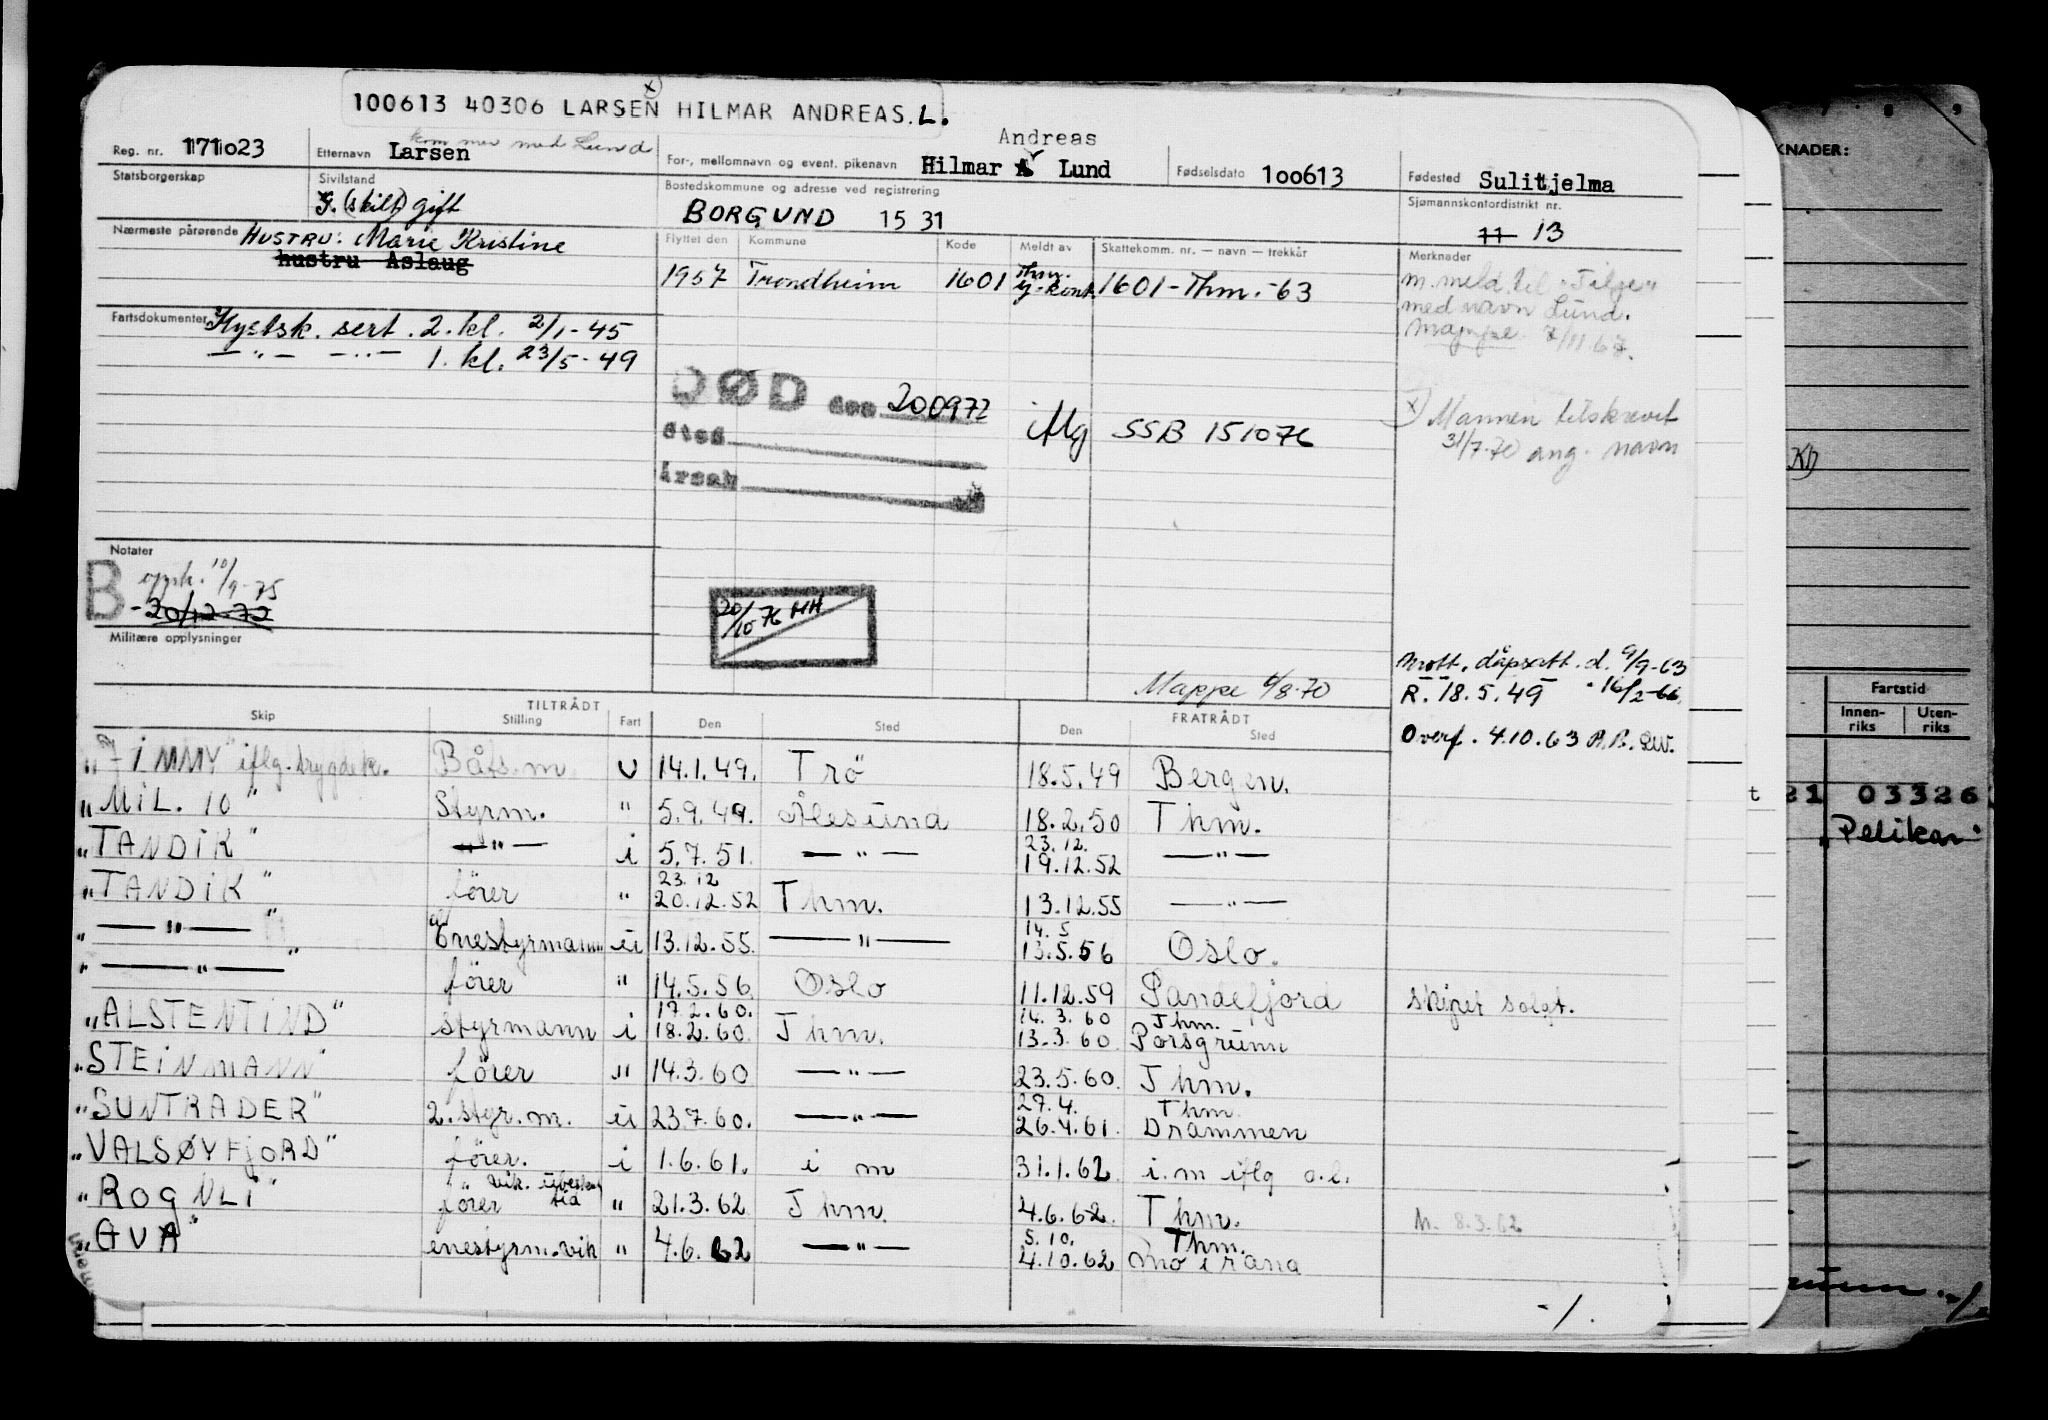 100613 40306 LARSEN HILMAR ANDREAS L.
x)
Reg. nr. 171023
Etternavn Larsen
med Lund
Andreas
For-, mellomnavn og event. pikenavn Hilmar A Lund
Fødselsdato 100613
Fødested Sulitjelma
Statsborgerskap
Sivilstand
G. (skilt) gift
Bostedskommune og adresse ved registrering
BORGUND 1531
Sjømannskontordistrikt nr.
11 13
Nærmeste pårørende HUSTRU: Marie Kristine
hustru Aslaug
Flyttet den Kommune Kode Meldt av Skattekomm. nr. — navn — trekkår
1957 Trondheim 1601 Thm. 1601-Thm.-63
Merknader
m. meld. til "Tilje"
med navn Lund.
Mappe 7/11.67.
Fartsdokumenter Kystsk. sert. 2. kl. 2/1-45
— " — — " — 1. kl. 23/5-49
DØD den 200972
iflg SSB 151076
sted
årsak
x) Mannen tilskrevet
31/7.70 ang. navn
Notater
B
10/9-75
-20/12-72
Militære opplysninger
20/10 76 HH
Mappe 4/8.70
Mott. dåpsatt. d. 9/9-63
R. 18.5.49 " 16/2-66
Overf. 4.10.63
TILTRÅDT
Skip Stilling Fart Den Sted
FRATRÅDT
Den Sted
"JIMMY" iflg. trygdek. Båts.m. U 14.1.49. Trö 18.5.49 Bergen.
"MIL. 10" Styrm. " 5.9.49. Ålesund 18.2.50 Thm.
23.12.
"TANDIK" — " — i 5.7.51. — " — 19.12.52 — " —
23.12
"TANDIK" förer " 20.12.52 Thm. 13.12.55 — " —
14.5
" — " — " enestyrmann ii 13.12.55. — " — 13.5.56 Oslo.
" — " — " förer " 14.5.56 Oslo 11.12.59 Sandefjord skipet solgt.
17.2.60. 14.3.60 Thm.
"ALSTENTIND" styrmann i 18.2.60 Thm. 13.3.60 Porsgrunn
"STEINMANN" förer " 14.3.60 — " — 23.5.60. Thm.
27.4. Thm.
"SUNTRADER" 2. styr.m. ii 23.7.60. — " — 26.4.61. Drammen
"VALSØYFJORD" förer. i 1.6.61. i m 31.1.62 i.m iflg o.l.
vik.
tid
"ROGNLI" förer " 21.3.62 Thm. 4.6.62. Thm. M. 8.3.62
5.10. Thm.
"GVA" enestyrm. vik " 4.6.62 — " — 4.10.62 Mo i rana
-/.
KNADER:
Fartstid
Innen-
riks
Uten-
riks
t 21 03326
"Pelikan"